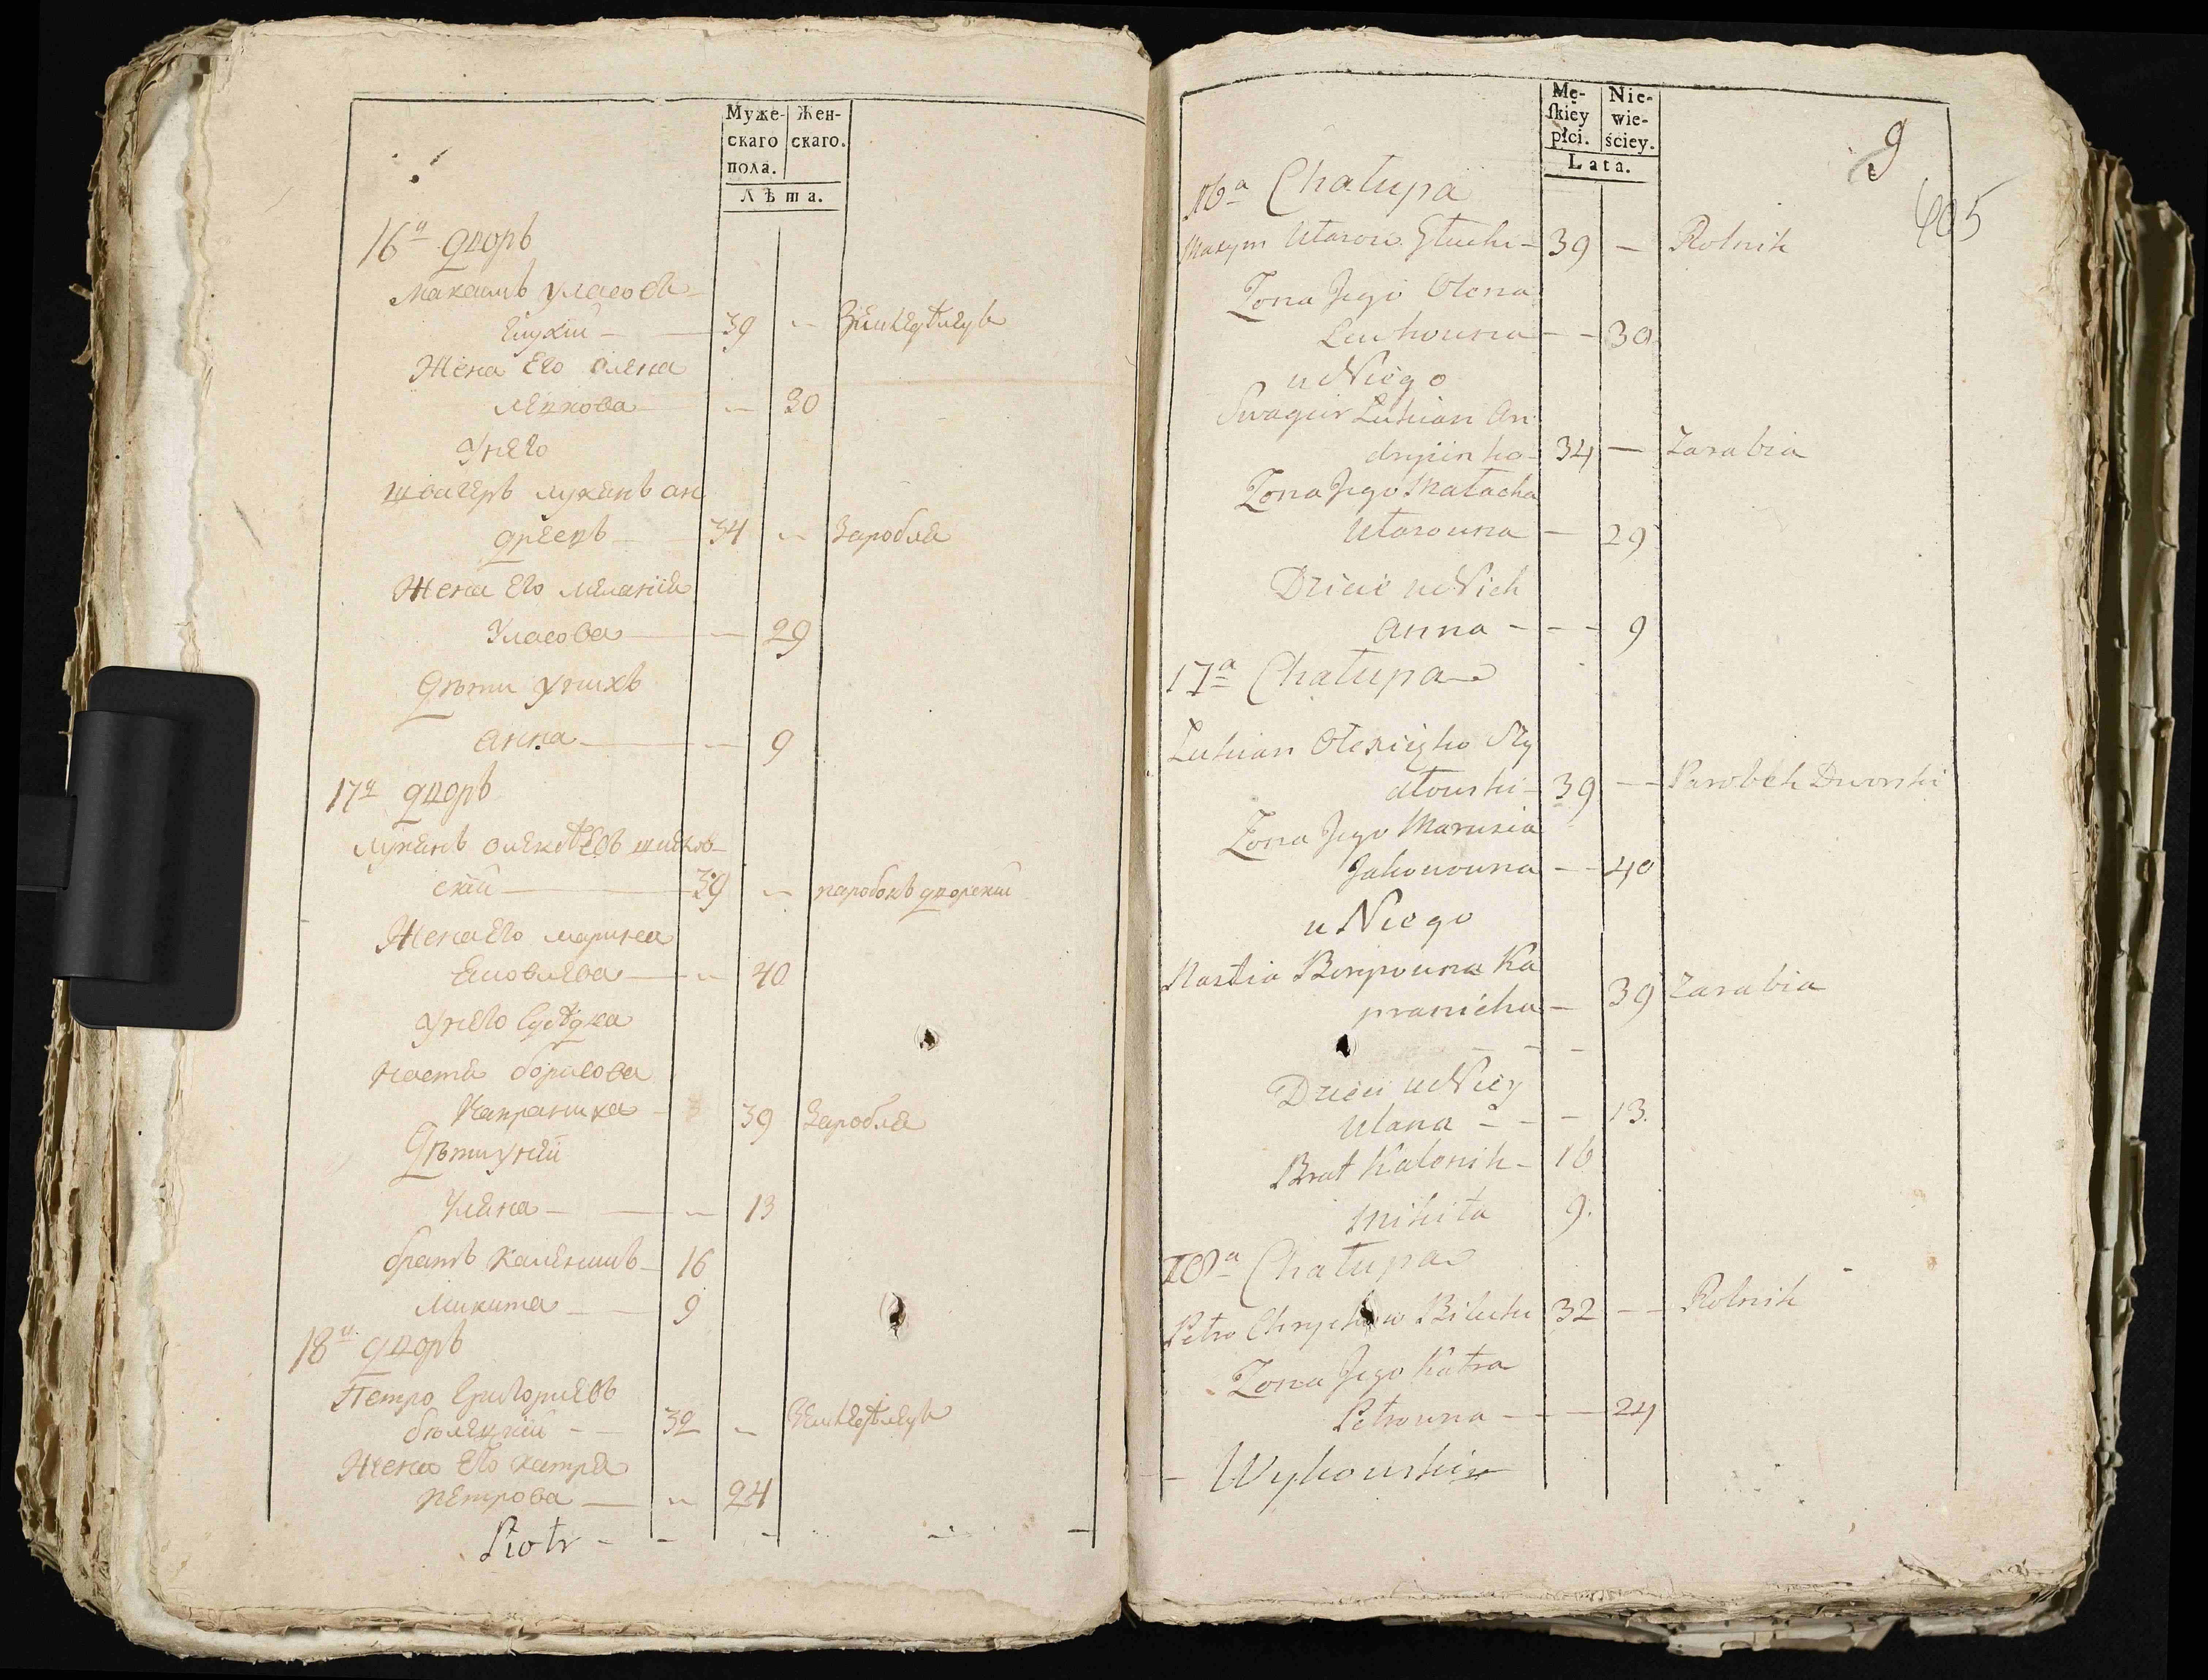 Муже-
скаго
пола.
Жен-
скаго.
Лѣта.
16й дворъ
Максимъ Уласовъ
Глухій — 39 — Земледѣлецъ
Жена Его Олена
Левкова — 30
У него
Швагеръ Лукянъ Ан
дреевъ — 34 — Заробля
Жена Его Меланія
Уласова — 29
Дѣти У нихъ
Анна — 9
17й дворъ
Лукянъ Олексѣевъ
скій — 39 — паробокъ дворскій
Жена Его Марися
Яковлева — 40
У него Сусѣдка
Настя Борисова
Капраниха — 39 Заробля
Дѣти у ней
Уляна — 13
братъ Каленикъ — 16
Микита — 9
18й дворъ
Петро Григориевъ
білецкій — 32 — Земледѣлецъ
Жена Его Катря
Петрова — 24
Piotr
Mę-
ſkiey
płci.
Nie-
wie-
ściey.
Lata.
9
605
16a Chałupa
Maxym Ułasow Głuchi — 39 — Rolnik
Zona Jego Olena
Lewkowna — 30
u Niego
Swagier Lukian An
dryiinko — 34 — Zarabia
Zona Jego Małacha
Ułasowna — 29
Dzieci u Nich
Anna — 9
17a Chałupa
Lukian Olexieyko Szy
dłowski — 39 — Parobek Dworski
Zona Jego Marusia
Jakowowna — 40
u Niego
Nastia Borysowna Ka
pranicha — 39 Zarabia
Dzieci u Niey
Ulana — 13.
Brat Kalenik — 16
Mikita 9.
18a Chałupa
Petro Hryhorow Bilecki 32 — Rolnik
Zona Jego Katra
Petrowna — 24
Wykowski